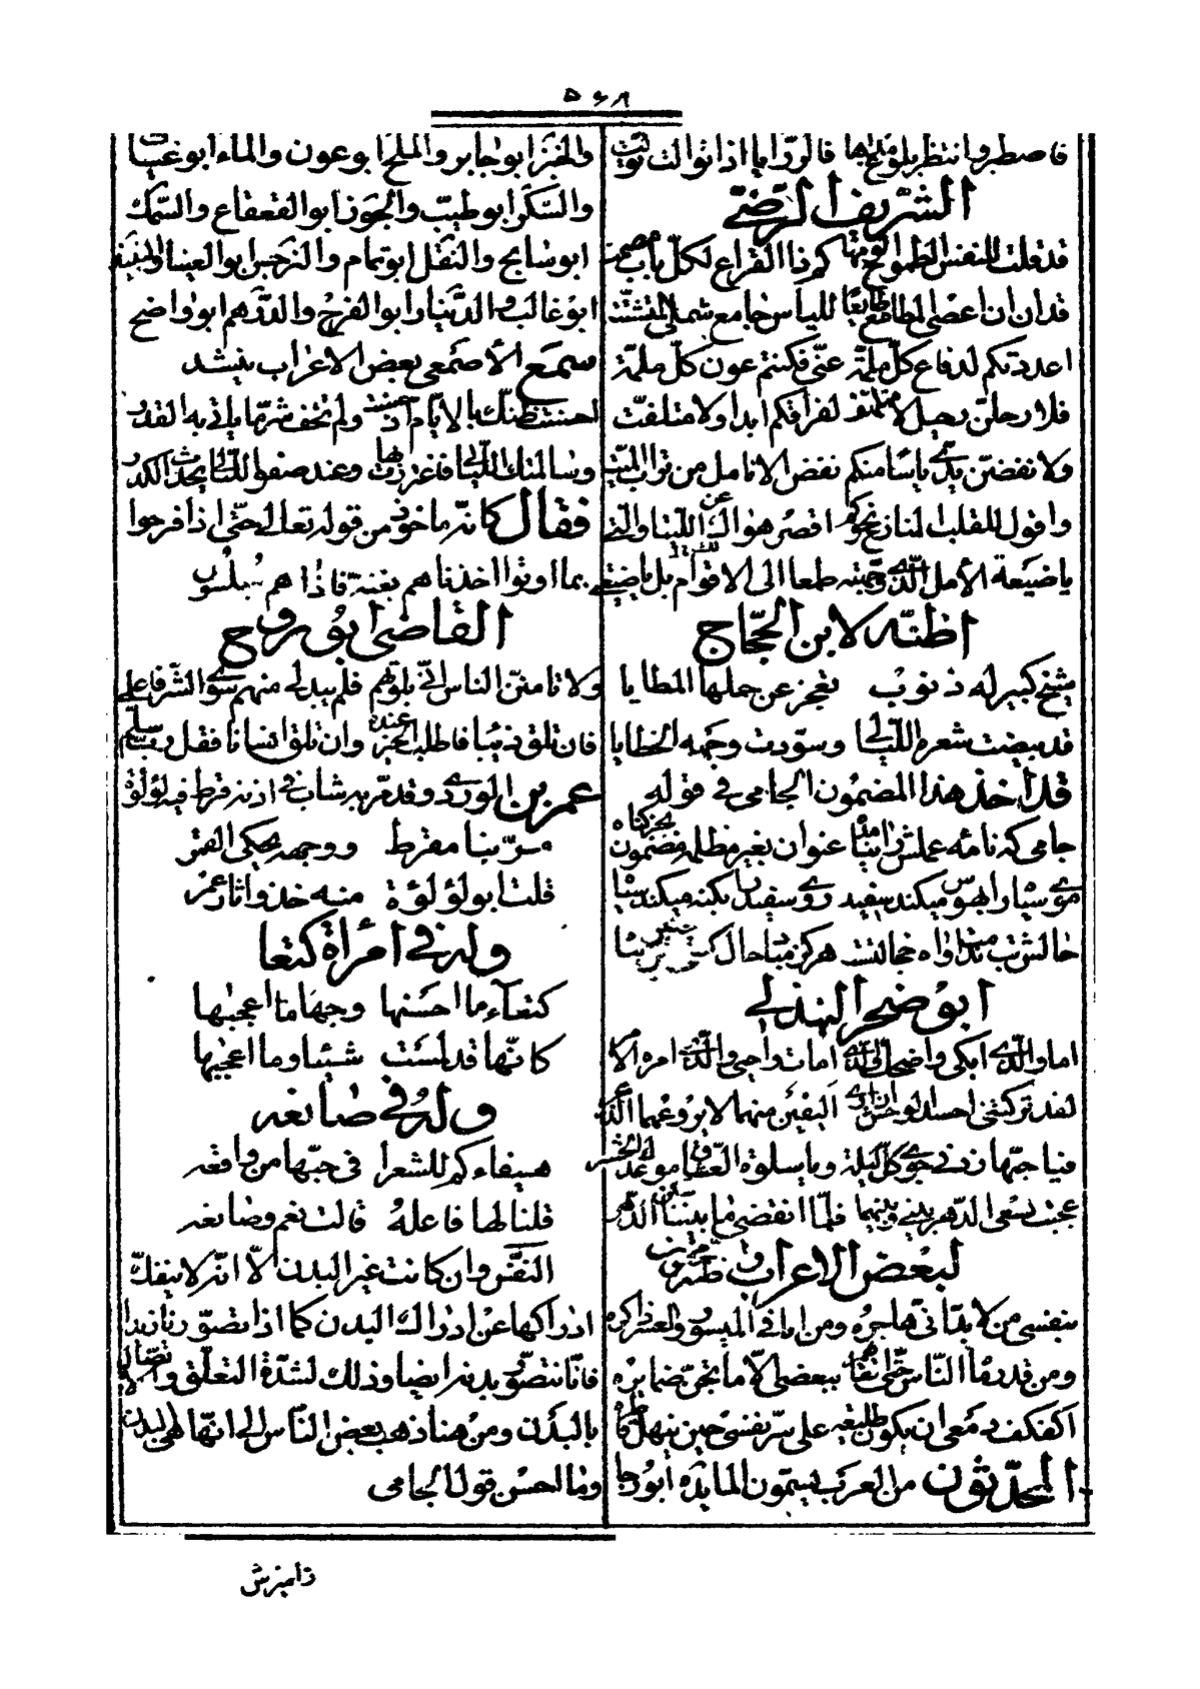 ۵۶۸
فاصطبر وانتظر بلوغ مداها فالرزايا اذا توالت تولت
الشريف الرضي
قد قلت للنفس الطموح كم ذا القراع لكل باب مصمت
قد ان ان اعصى المطامع طايعا لليأس جامع شملى المتشتت
اعددتكم لدفاع كل ملمة عنى فكنتم عون كل ملمة
فلارحلن رحيل لا متلهف لفراقكم ابدا ولا متلفت
ولانفضن يدي ياسا منكم نفض الانامل من تراب الميت
واقول للقلب المنازع نحوكم اقصر هواك اللتيا والتى
يا ضيعة الأمل الذي وجهته طمعا الى الاقوام بل يا ضيعتي
اظنه لابن الحجاج
شيخ كبير له ذنوب تعجز عن حملها المطايا
قد بيضت شعره الليالى وسودت وجهه الخطايا
قد اخذ هذا المضمون الجامى فى قوله
جامى كه نامه عملش را عنوان بغير مظلمه مضمون بجز گناه
موى سياه را بهوس ميكند سفيد روى سفيد را بگنه ميكند سياه
ابو صخر الهذلى
اما والذى ابكى واضحك والذى امات واحيى والذى امره الامر
لقد تركتنى احسد الوحش ان ارى اليفين منها لا يروعهما الذعر
فيا حبها زدنى جوى كل ليلة ويا سلوة العشاق موعدك الحشر
عجبت لسعى الدهر بينى وبينها فلما انقضى ما بيننا سكن الدهر
لبعض الاعراب
بنفسى من لا بد انى هاجره ومن انا فى الميسور والعسر ذاكره
ومن قد رماه الناس حتى اتقاهم ببعضى الا ما تجن ضمايره
المحدثون من العرب يسمون المايده ابو رجا
والخبز ابو جابر والملح ابو عون والماء ابو غياث
والسكر ابو طيب والجوز ابو القعقاع والسمك
ابو سابح والنقل ابو تمام والنرجس ابو العينا
ابو غالب الدينار ابو الفرج والدرهم ابو واضح
سمع الأصمعى بعض الاعراب ينشد
احسنت ظنك بالايام اذ حسنت ولم تخف شر ما ياتى به القدر
وسالمتك الليالى فاغتررت بها وعند صفو الليالى يحدث الكدر
فقال كانه ماخوذ من قوله تعالى حتى اذا فرحوا
بما اوتوا اخذناهم بغتة فاذا هم مبلسون
القاضى ابو روح
ولا تامنن الناس انى بلوتهم فلم يبد لى منهم سوى الشر فاعلم
فان تلق ذئبا فاطلب الخير عنده وان تلق انسانا فقل رب سلم
عمر بن الوردى وقد مر به شاب فى اذنه قرط فيه لؤلؤة
مر بنا مقرط ووجهه يحكى القمر
قلت ابو لؤلؤة منه خذوا ثار عمر
وله فى امرأة كتعا
كتعاء ما احسنها وجها وما اعجبها
كانها قد لمست شيئا وما اعجبها
وله فى صانعه
هيفاء كم للشعرا فى حبها من واقعه
قلنا لها فاعله قالت نعم وصانعه
النفس وان كانت غير البدن الا انه لا ينفك
ادراكها عن ادراك البدن كما اذا تصور زيدا
فانا نتصور بدنه ايضا وذلك لشدة التعلق
بالبدن ومن هنا ذهب بعض الناس الى انها هى البدن
وما احسن قول الجامى